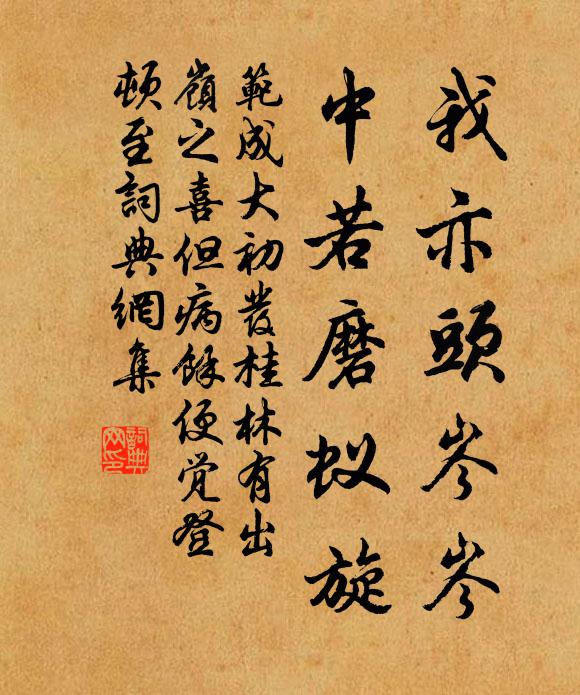 我亦頭岑岑
中若磨蚁旋
範成大初發桂林有出
嶺之喜但病餘便觉登
頓至詞典網集
詞典
网印